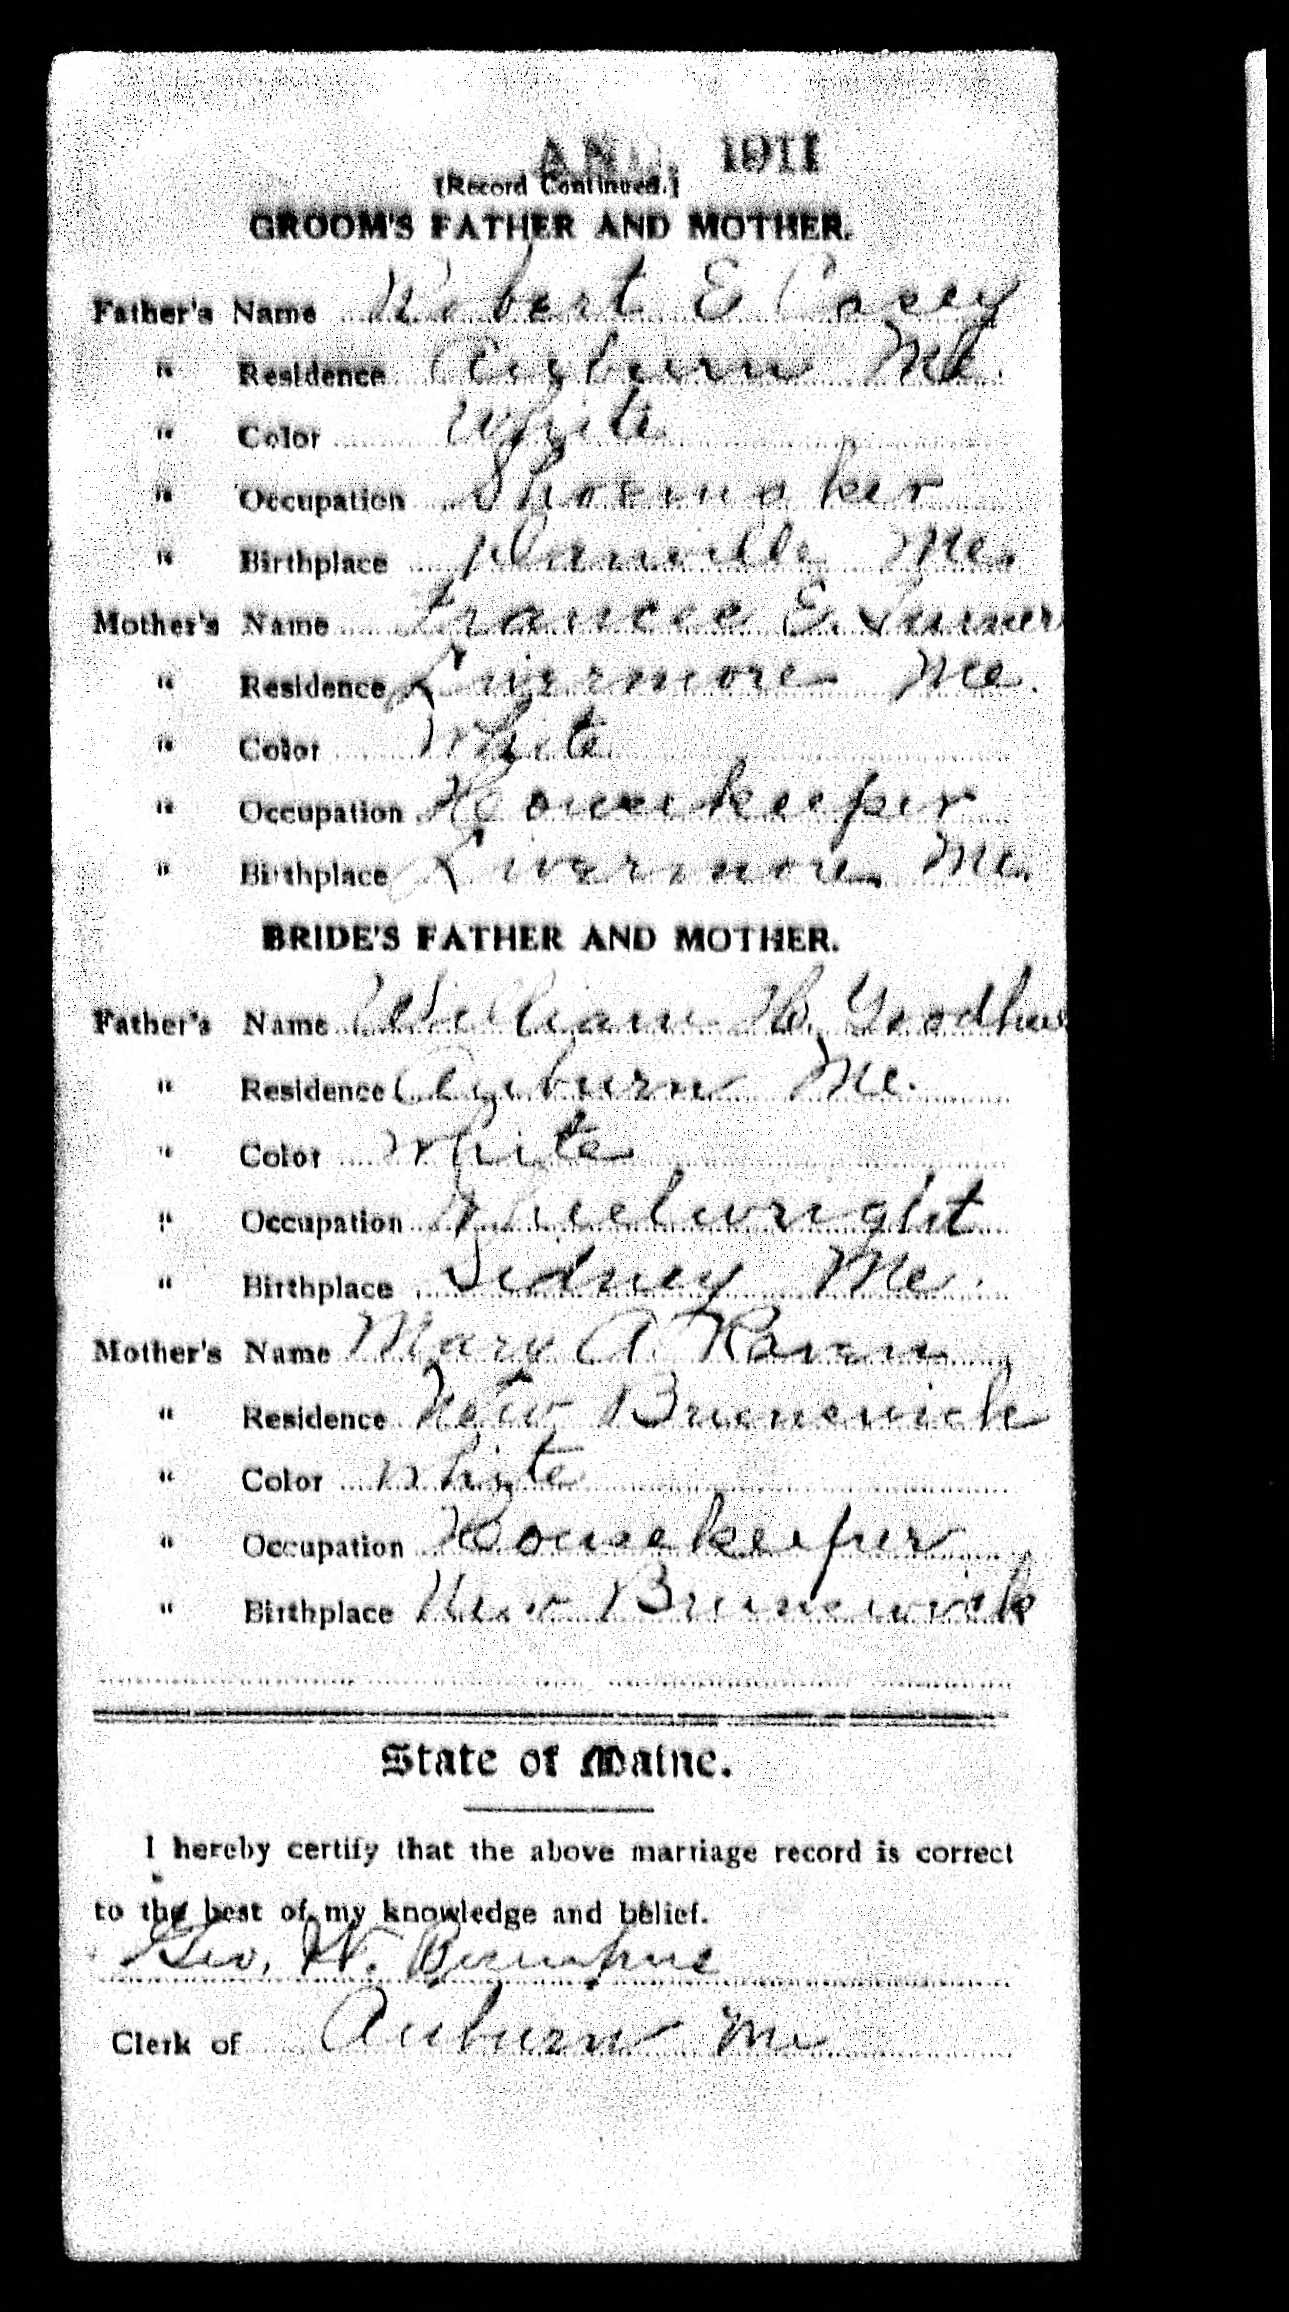 JAN 1911
[Record Continued.]
GROOM'S FATHER AND MOTHER.
Father's Name Robert E Casey
" Residence Auburn Me.
" Color White
" Occupation Shoemaker
" Birthplace Danville Me.
Mother's Name Frances E. Turner
" Residence Livermore Me.
" Color White
" Occupation Housekeeper
" Birthplace Livermore Me.
BRIDE'S FATHER AND MOTHER.
Father's Name William H. Goodhue
" Residence Auburn Me.
" Color White
" Occupation Wheelwright
" Birthplace Sidney Me.
Mother's Name Mary A.
" Residence New Brunswick
" Color White
" Occupation Housekeeper
" Birthplace New Brunswick
State of Maine.
I hereby certify that the above marriage record is correct
to the best of my knowledge and belief.
Geo. W.
Clerk of Auburn Me